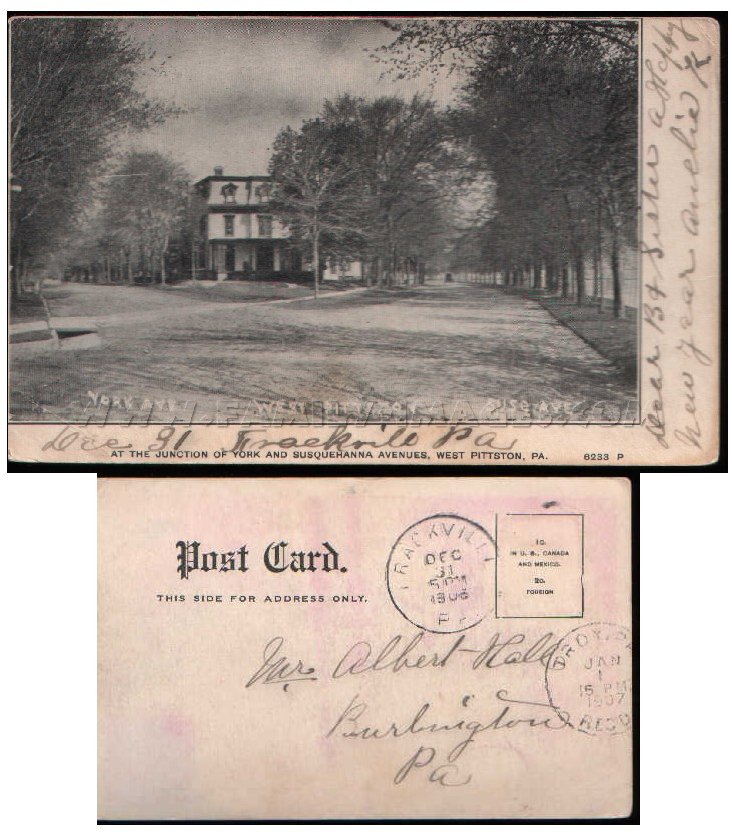 YORK AVE.
WEST PITTSTON
SUSQ. AVE.
Dec 31 Frackvile Pa
AT THE JUNCTION OF YORK AND SUSQUEHANNA AVENUES, WEST PITTSTON, PA. 6233 P
Dear Br & Sister a Happy
New year
Post Card.
THIS SIDE FOR ADDRESS ONLY.
FRACKVILLE
DEC
31
5 PM
1906
PA
1c.
IN U. S., CANADA
AND MEXICO.
2c.
FOREIGN
Mr Albert Hall
Burlington
Pa
TROY,
JAN
1
PM
1907
REC'D